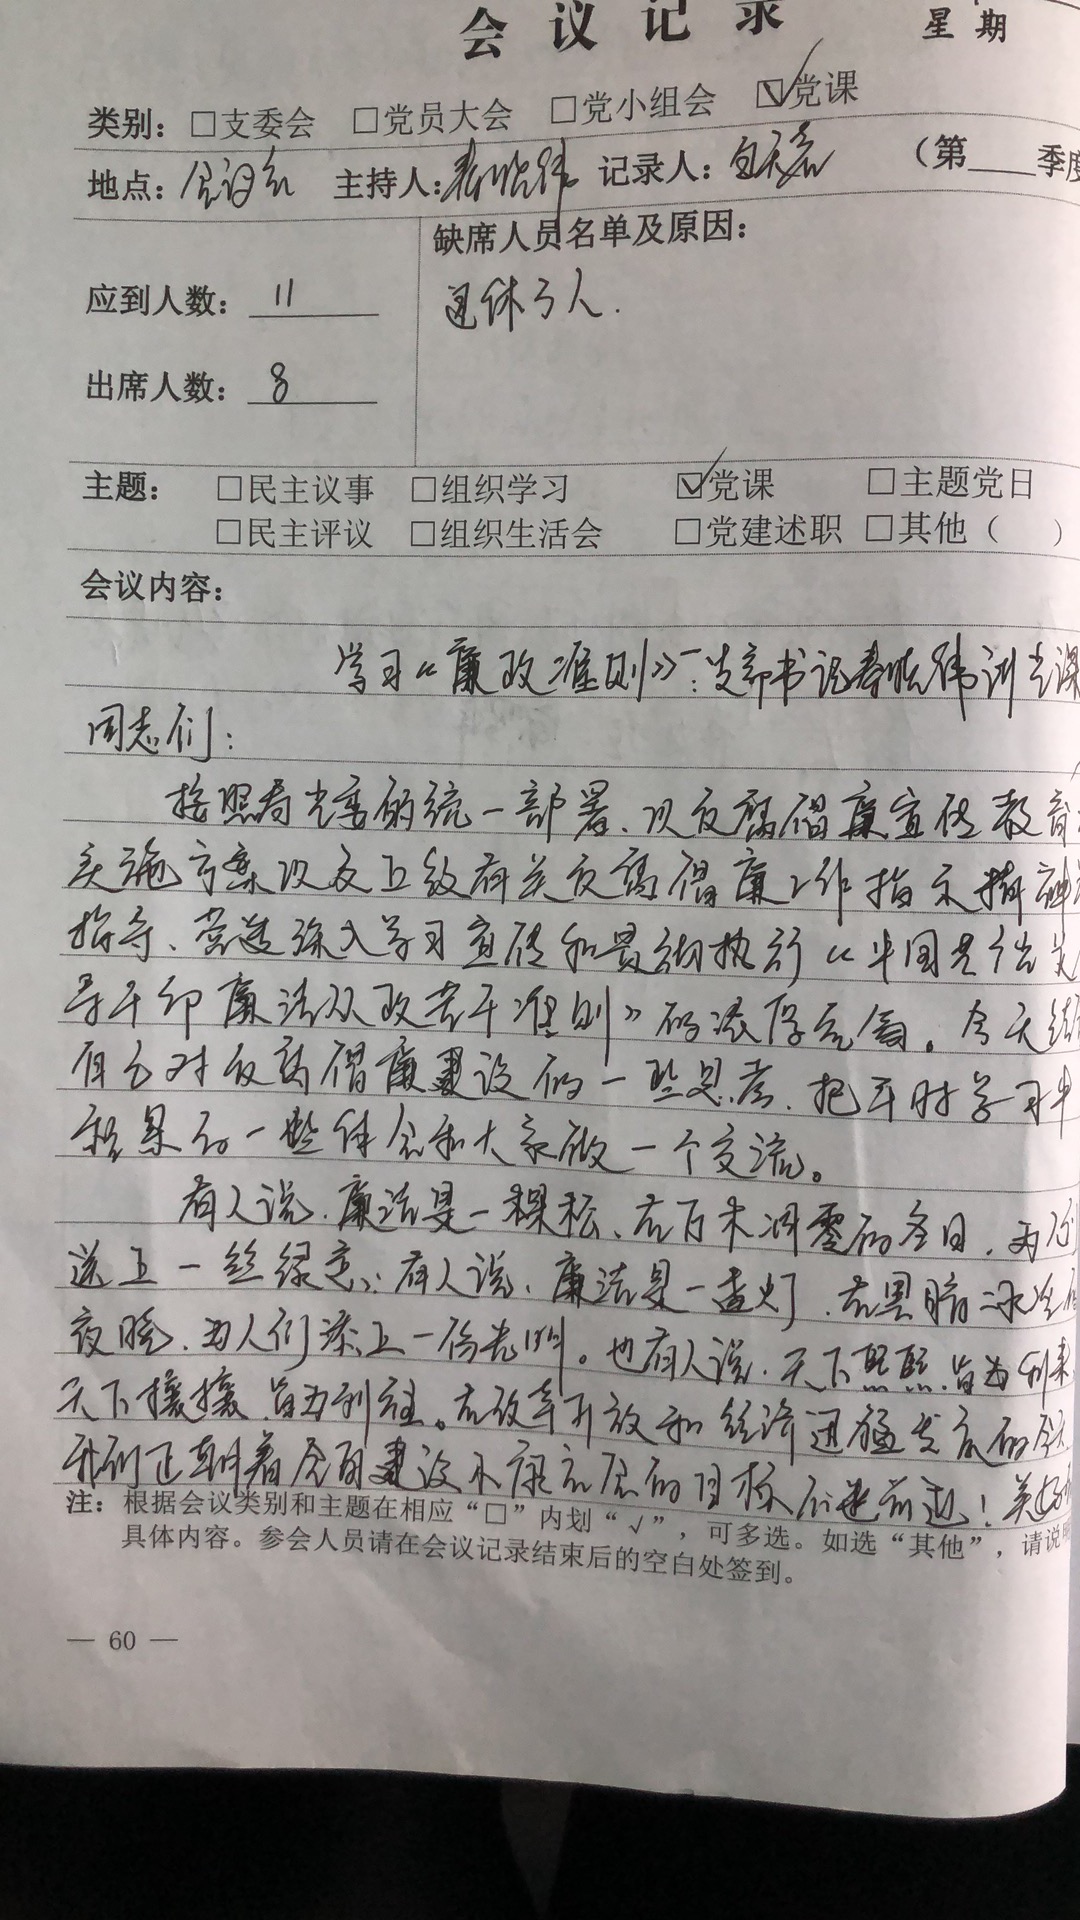 会议记录
星期
类别：□支委会 □党员大会 □党小组会 ☑党课
地点：会议室 主持人： 记录人： （第____季度
缺席人员名单及原因：
应到人数：11
退休3人.
出席人数：8
主题：□民主议事 □组织学习 ☑党课 □主题党日
□民主评议 □组织生活会 □党建述职 □其他（ ）
会议内容：
学习《廉政准则》：支部书记 讲党课
同志们：
按照局党委的统一部署、以反腐倡廉宣传教育
实施方案以及上级有关反腐倡廉工作指示精神为
指导、营造深入学习宣传和贯彻执行《中国共产党
导干部廉洁从政若干准则》的浓厚氛围。今天结
自己对反腐倡廉建设的一些思考、把平时学习中
积累的一些体会和大家做一个交流。
有人说、廉洁是一棵松、在万木凋零的冬日、为你
送上一丝绿意；有人说、廉洁是一盏灯、在黑暗冰冷的
夜晚、为人们添上一份光明。也有人说、天下熙熙、皆为利来
天下攘攘、皆为利往。在改革开放和经济迅猛发展的今天
我们正朝着全面建设小康社会的目标不断前进！美好
注：根据会议类别和主题在相应“□”内划“√”，可多选。如选“其他”，请说明
具体内容。参会人员请在会议记录结束后的空白处签到。
— 60 —